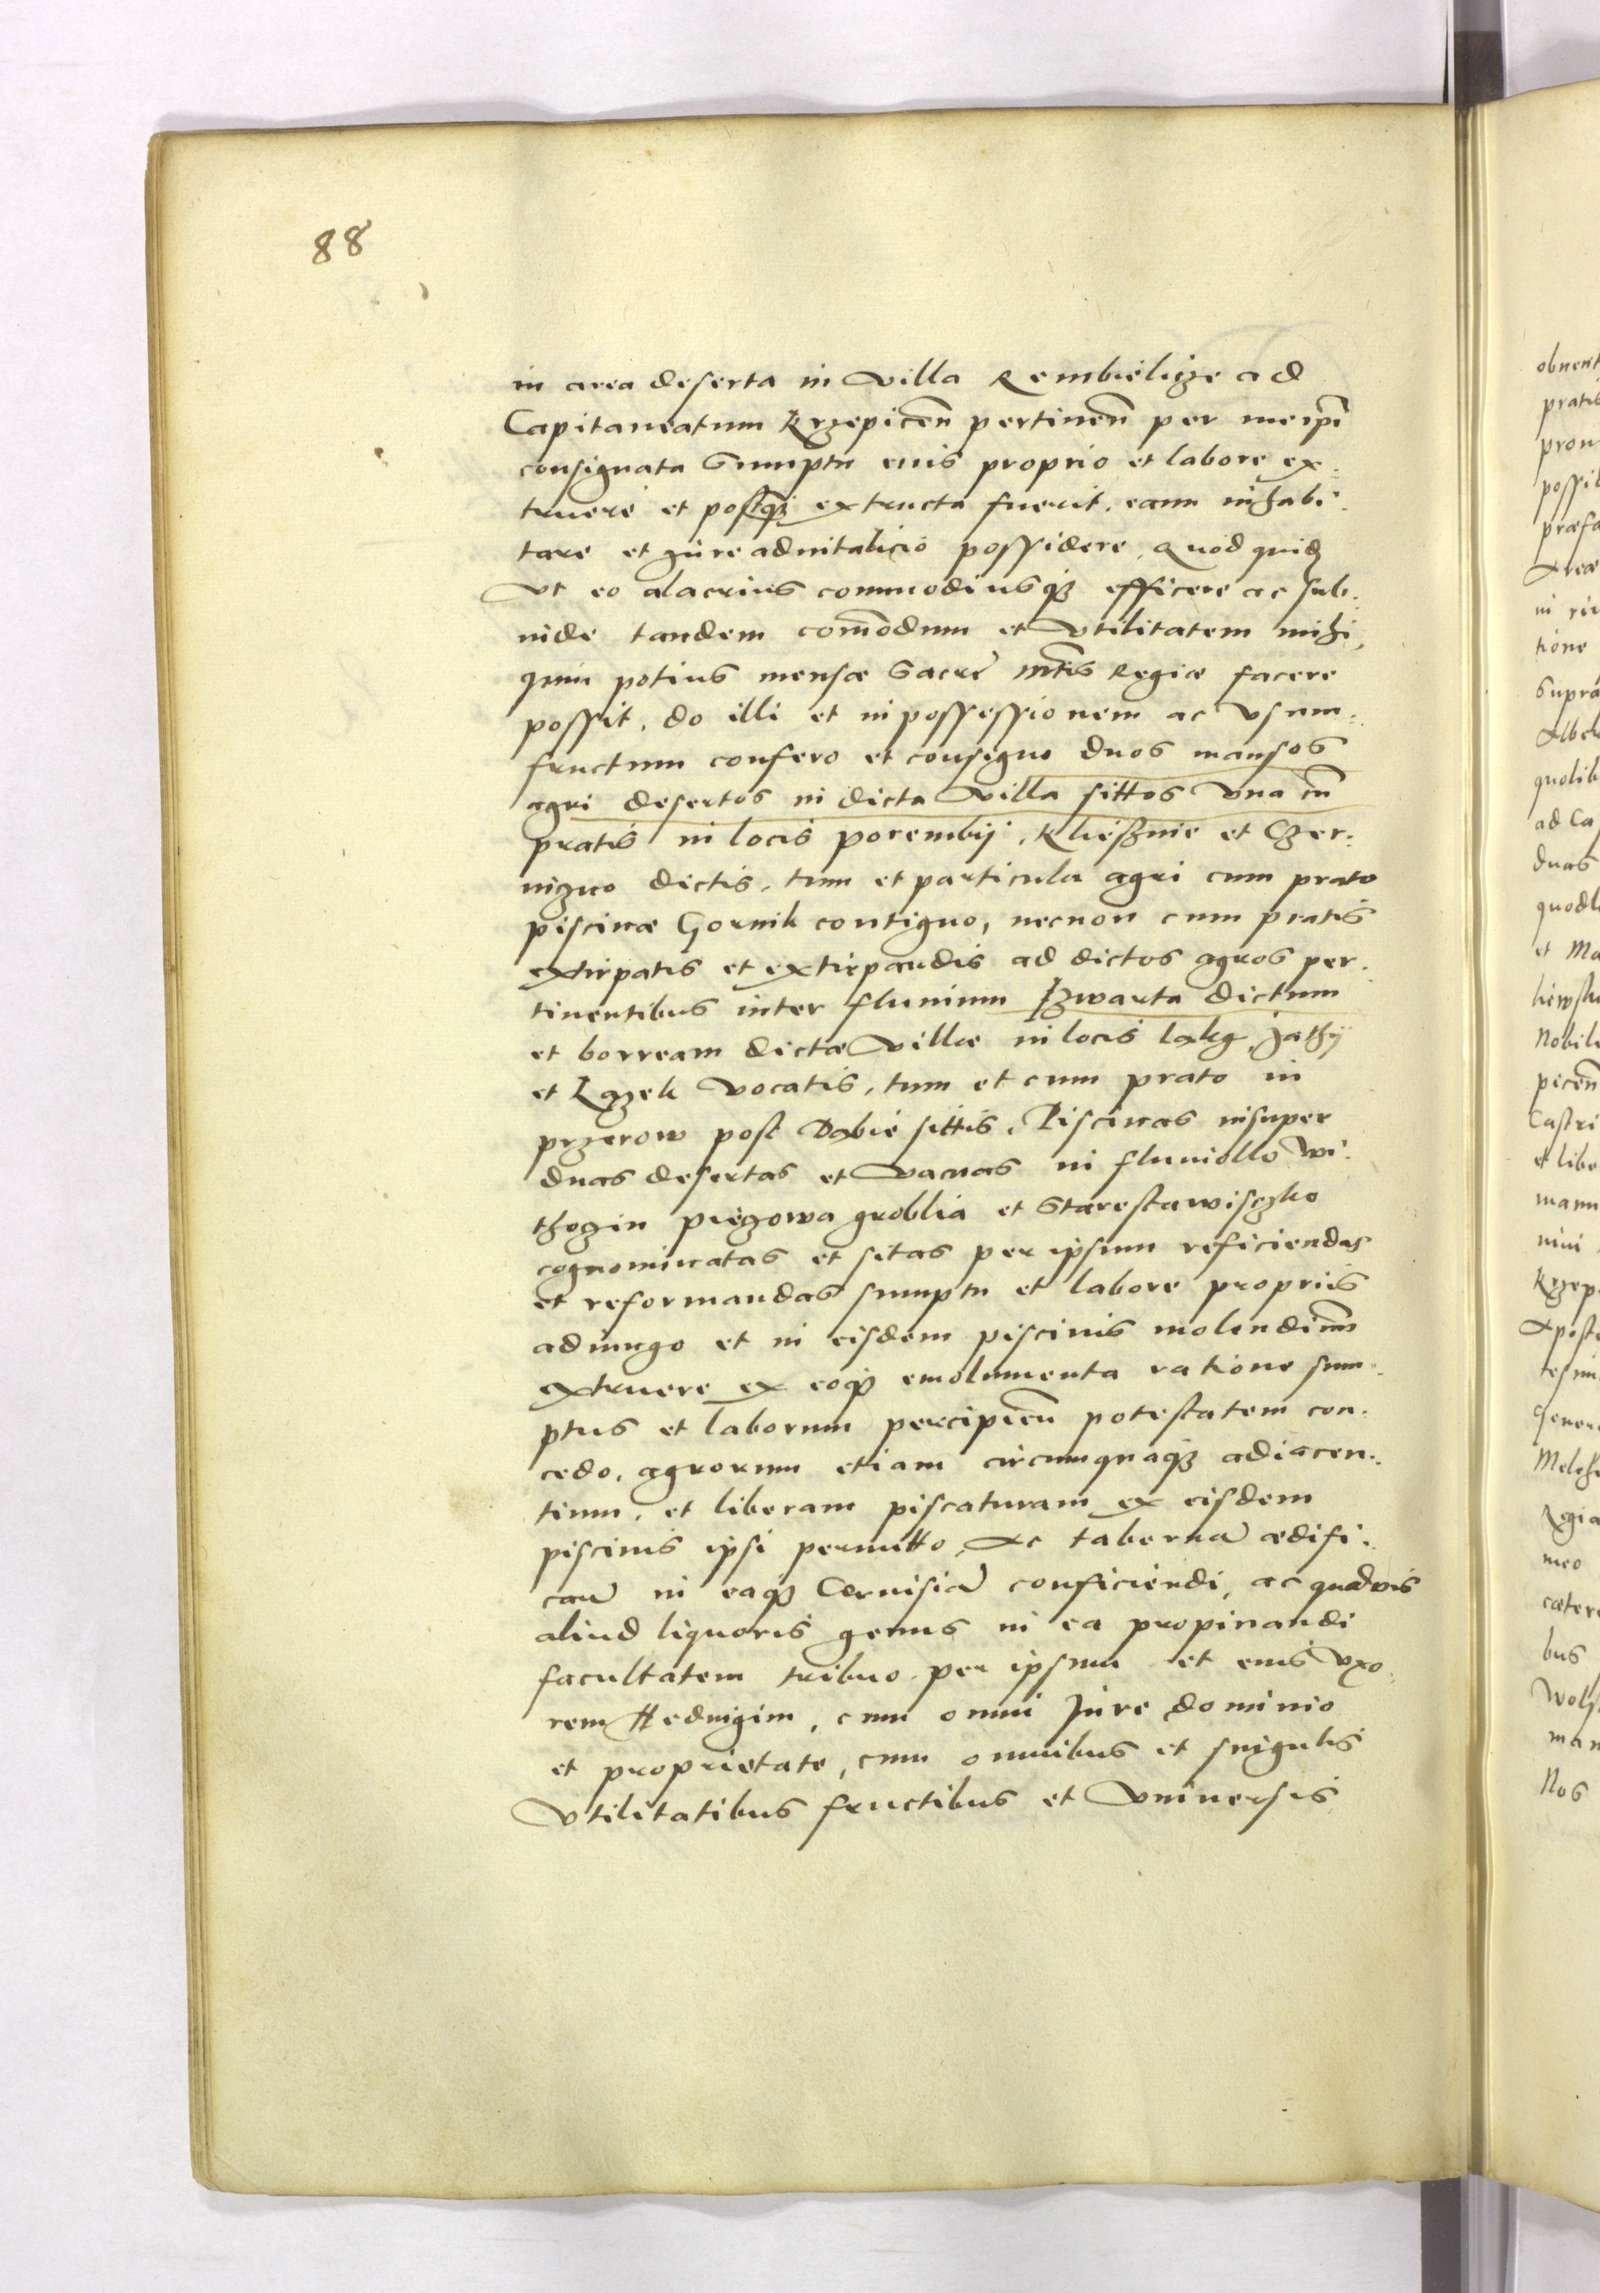 88
in area deserta in villa Rembielize ad
Capitaneatum Krzepiceñ pertineñ per me ipm̃
consignata sumptu eius proprio et labore ex-
truere et postqꝫ extructa fuerit, eam inhabi-
tare et jure aduitalicio possidere, Quod quidẽ
vt eo alacrius commodiusqꝫ efficere ac sub-
inde tandem com̃odum et vtilitatem mihi,
quin potius mensæ Sacræ Mtis Regiæ facere
possit, do illi et in possessionem ac vsum-
fructum confero et consigno duos mansos
agri desertos in dicta villa sittos vna cũ
pratis in locis porembij, Kliesznie et Czer-
nizno dictis, tum et particula agri cum prato
piscinæ Gornik contiguo, necnon cum pratis
extirpatis et extirpandis ad dictos agros per-
tinentibus inter fluuium Szwarta dictum
et borream dictæ villæ in locis lakg, jathij
et Kązek vocatis, tum et cum prato in
przerow post Dąbie sittis, Piscinas insuper
duas desertas et vacuas in fluuiollo wi-
thozin piezowa groblia et Starestawiszko
cognominatas et sitas per ipsum reficiendas
et reformandas sumptu et labore propriis
adiungo et in eisdem piscinis molendinũ
extruere ex eoqꝫ emolumenta ratione sum-
ptus et laborum percipieñ potestatem con-
cedo, agrorum etiam circumquaqꝫ adiacen-
tium, et liberam piscaturam ex eisdem
piscinis ipsi permitto, Ac tabernã ædifi-
cañ in eaqꝫ Ceruisiã conficiendi, ac quaduis
aliud liquoris genus in ea propinandi
facultatem tribuo per ipsum et eius vxo-
rem Heduigim, cum omni Jure dominio
et proprietate, cum omnibus et singulis
vtilitatibus fructibus et vniuersis
pratis
possit
tione
supra
quolib
ad Ca
duas
et Ma
Nobile
piceñ
Castri
et libe
Krzep
Melch
Regia
meo
bus
Nos